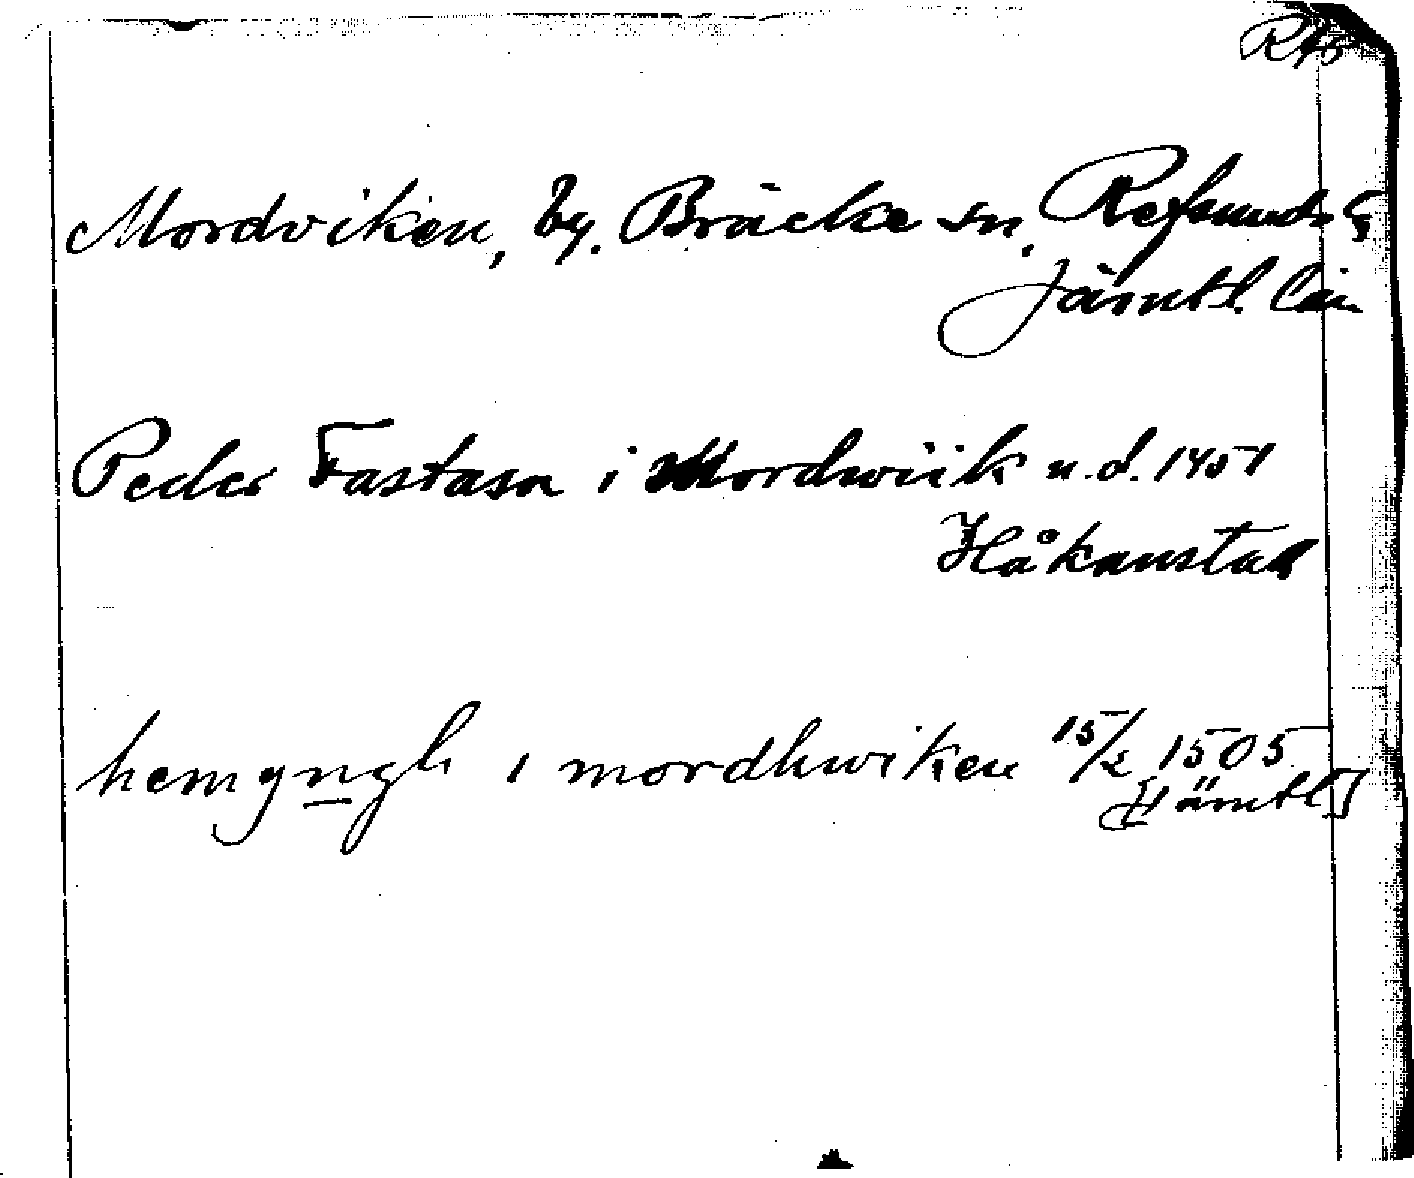 RAp
Mordviken, by. Bräcke sn. Refsunds
Jämtl. län
Peder Fastason i Mordwiik u.d. 1451
Håkanstad
hemgyngh i mordhwiken 15/2 1505
[Jämtl]